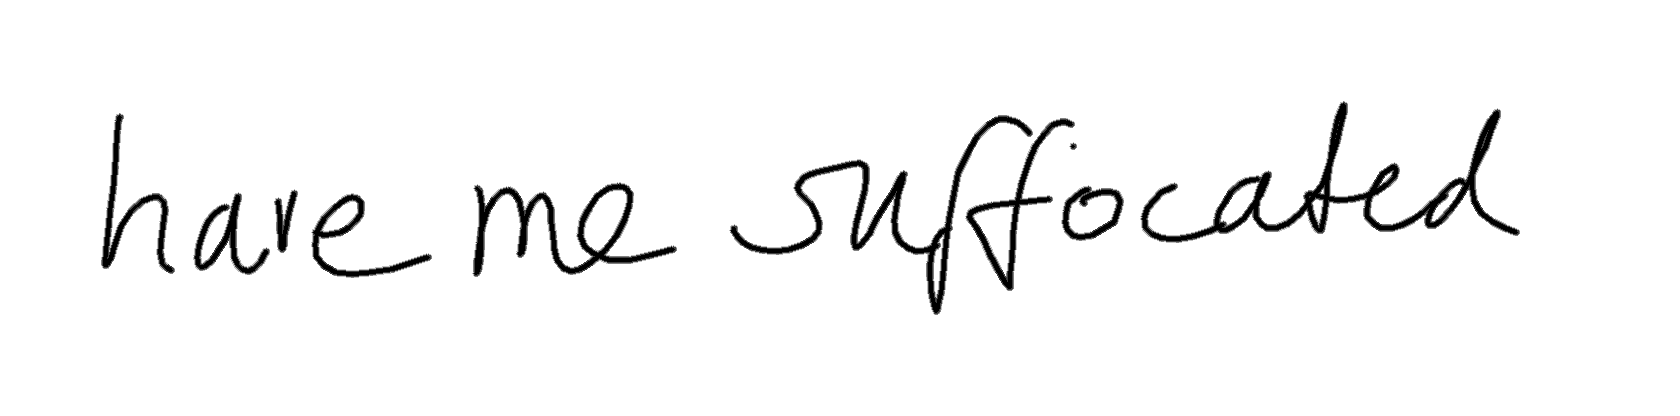 have me suffocated